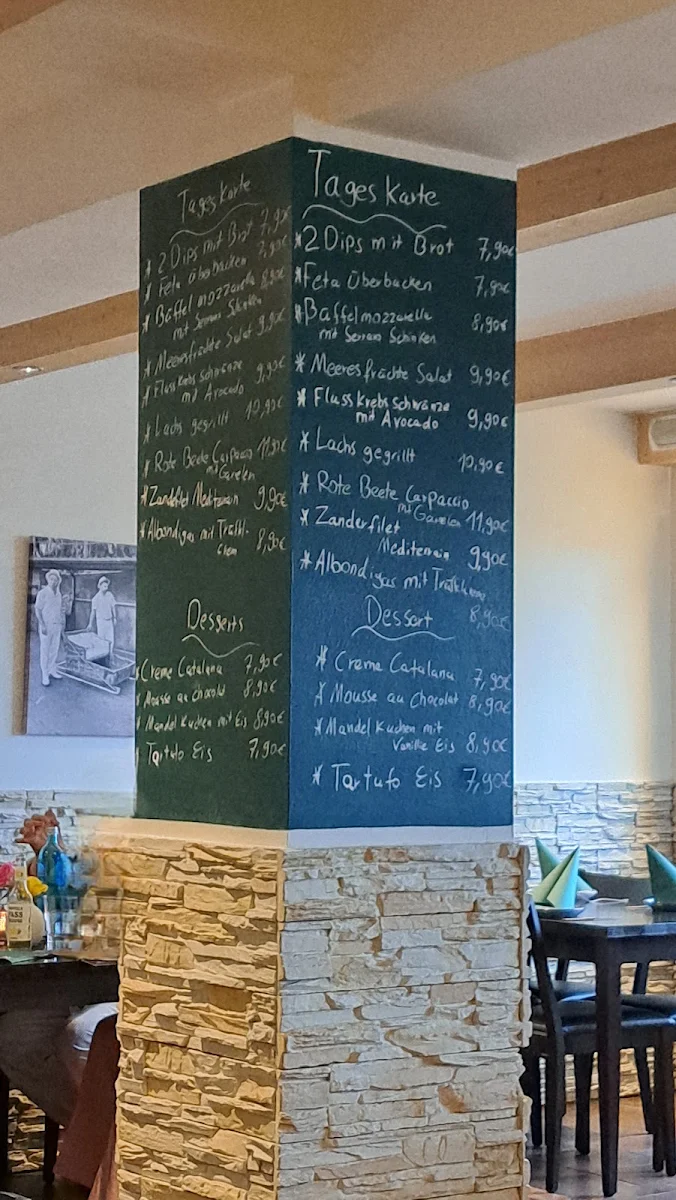 Tages Karte
* 2 Dips mit Brot 7,90€
* Feta Überbacken 7,90€
* Büffelmozzarella 8,90€
mit Serrano Schinken
* Meeresfrüchte Salat 9,90€
* Flusskrebsschwänze 9,90€
mit Avocado
* Lachs gegrillt 10,90€
* Rote Beete Carpaccio 11,90€
mit Garnelen
* Zanderfilet Mediterrain 9,90€
* Albondigas mit Trüffel-
8,90€
Desserts
* Creme Catalana 7,90€
* Mousse au Chocolat 8,90€
* Mandel Kuchen mit Eis 8,90€
* Tartufo Eis 7,90€
Tages Karte
* 2 Dips mit Brot 7,90€
* Feta Überbacken 7,90€
* Büffelmozzarella 8,90€
mit Serrano Schinken
* Meeresfrüchte Salat 9,90€
* Flusskrebsschwänze
mit Avocado 9,90€
* Lachs gegrillt 10,90€
* Rote Beete Carpaccio
mit Garnelen 11,90€
* Zanderfilet
Mediterrain 9,90€
* Albondigas mit
8,90€
Dessert
* Creme Catalana 7,90€
* Mousse au Chocolat 8,90€
* Mandel Kuchen mit
Vanille Eis 8,90€
* Tartufo Eis 7,90€